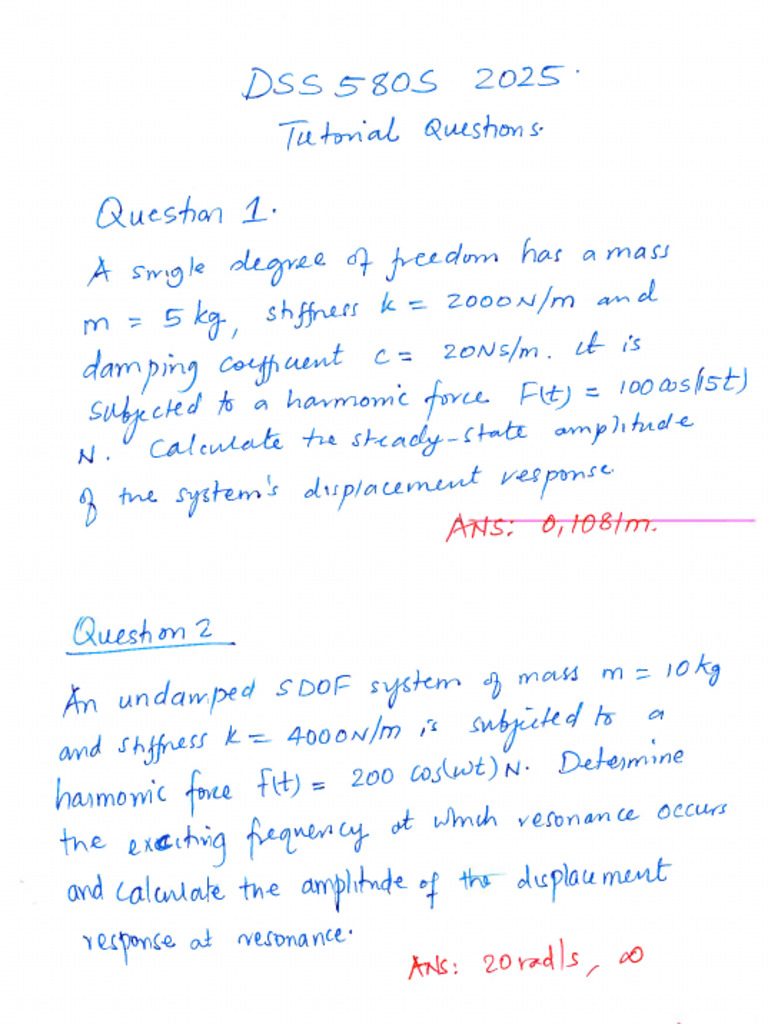 DSS 580S 2025.
Tutorial Questions.
Question 1.
A single degree of freedom has a mass
m = 5 kg, stiffness k = 2000N/m and
damping coefficient c = 20Ns/m. it is
subjected to a harmonic force F(t) = 100cos(15t)
N. Calculate the steady-state amplitude
of the system's displacement response.
ANS: 0,1081m.
Question 2
An undamped SDOF system of mass m = 10kg
and stiffness k = 4000N/m is subjected to a
harmonic force f(t) = 200 cos(wt) N. Determine
the exciting frequency at which resonance occurs
and calculate the amplitude of the displacement
response at resonance.
ANS: 20 rad/s, ∞